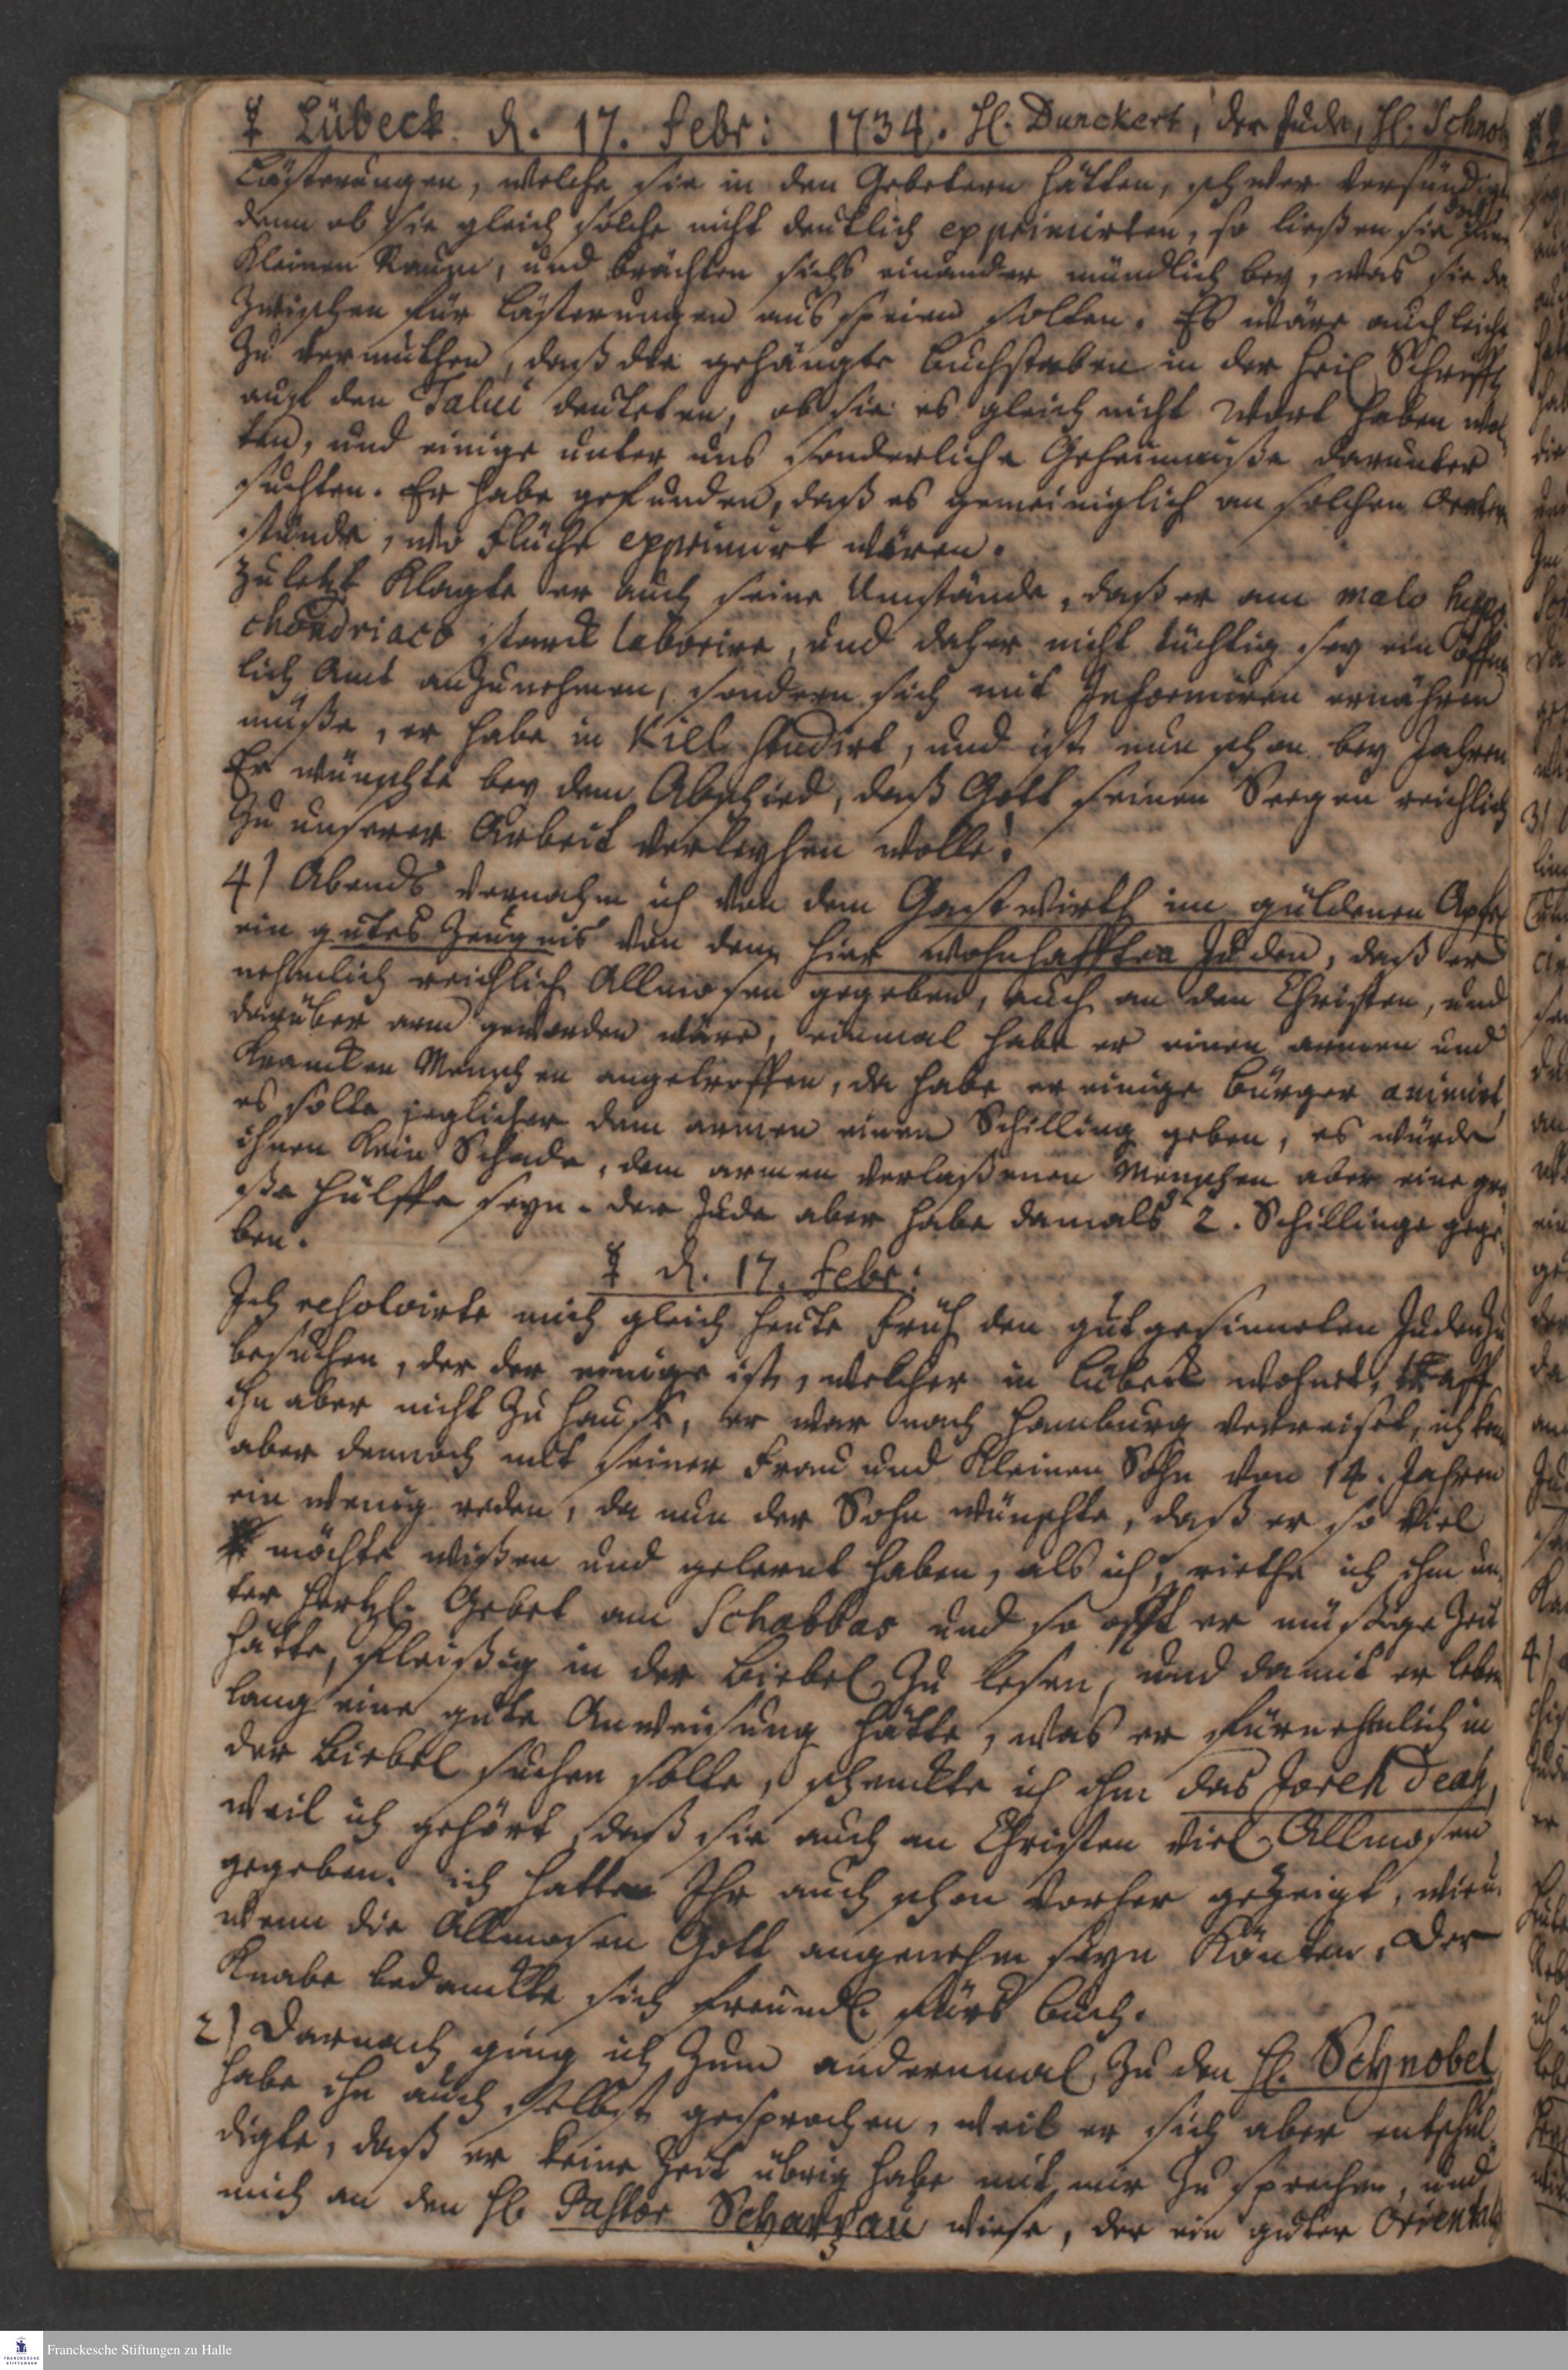 ☿ Lübeck. d. 17. Febr: 1734. H. Dunckert, der Jude, H. Schnob
Lästerungen, welche sie in den Gebetern hätten, schwer versündigt
denn ob sie gleich solche nicht deutlich exprimirten, so ließen sie
kleinen Raum, und brächten sichs einander mündlich bey, was sie da
zwischen für Lästerungen ausspeien solten. Es wäre auch leicht
zu vermuthen, daß die gehängte Buchstaben in der Heil Schrifft
auf den Talui deuteten, ob sie es gleich nicht Wort haben wol
ten, und einige unter uns sonderliche Geheimniße darunter
suchten. Er habe gefunden, daß es gemeiniglich an solchen Orten
stünde, wo Flüche exprimirt wären.
Zuletzt klagte er auch seine Umstände, daß er am malo hypo
chondriaco starck laborire, und daher nicht tüchtig sey ein öffent
lich Amt anzunehmen, sondern sich mit Informiren ernähren
müße, er habe in Kiel studirt, und ist nun schon bey Jahren
Er wünschte bey dem Abschied, daß Gott seinen Seegen reichlich
zu unserer Arbeit verleyhen wolle!
4) Abends vernahm ich von dem Gastwirth im güldenen Apfel
ein gutes Zeugnis von dem hier wohnhafften Juden, daß er
nehmlich reichlich Allmosen gegeben, auch an den Christen, und
darüber arm geworden wäre, einmal habe er einen armen und
krancken Menschen angetroffen, da habe er einige Bürger animirt,
es solte jeglicher dem armen einen Schilling geben, es würde
ihnen kein Schade, dem armen verlaßenen Menschen aber eine gro
ße Hülffe seyn. der Jude aber habe damals 2. Schillinge gege
ben.
☿ d. 17. Febr:
Ich resolvirte mich gleich heute früh den gutgesinneten Juden zu
besuchen, der der einige ist, welcher in Lübeck wohnet, traff
ihn aber nicht zu Hause, er war nach Hamburg verreiset, ich kont
aber dennoch mit seiner Frau und kleinen Sohn von 14. Jahren
ein wenig reden, da nun der Sohn wünschte, daß er so viel
möchte wißen und gelernt haben, als ich, riethe ich ihm un
ter hertzl. Gebet am Schabbas und so offt er müßige Zeit
hätte, fleißig in der Biebel zu lesen, und damit er lebens
lang eine gute Anweisung hätte, was er fürnehmlich in
der Biebel suchen solte, schenckte ich ihm das Joreh Deah,
weil ich gehört, daß sie auch an Christen viel Allmosen
gegeben. ich hatte Ihr auch schon vorher gezeigt, wie u.
wenn die Allmosen Gott angenehm seyn könten. Der
Knabe bedanckte sich freundl. fürs Buch.
2) Darnach ging ich zum andernmal zu den H. Schnobel
habe ihn auch selbst gesprochen, weil er sich aber entschul
digte, daß er keine Zeit übrig habe mit mir zu sprechen, und
mich an den H. Pastor Scharbau wiese, der ein guter Oriental
Franckesche Stiftungen zu Halle